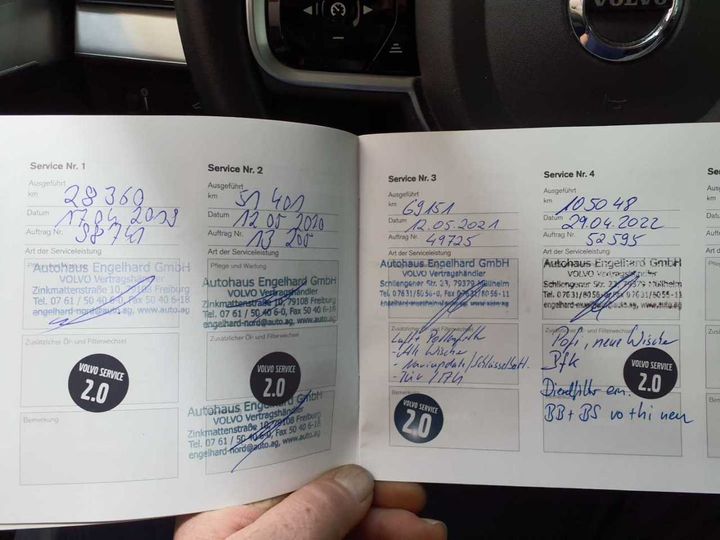 VOLVO
Service Nr. 1
Ausgeführt
km 28 360
Datum 17.04 2019
Auftrag Nr. 38741
Art der Serviceleistung
Autohaus Engelhard GmbH
VOLVO Vertragshändler
Zinkmattenstraße 10, 79108 Freiburg
Tel. 07 61 / 50 40 6-0, Fax 50 40 6-18
engelhard-nord@auto.ag, www.auto.ag
Zusätzlicher Öl- und Filterwechsel
VOLVO SERVICE
2.0
Bemerkung
Service Nr. 2
Ausgeführt
km 51 401
Datum 12 05 2020
Auftrag Nr. 13 205
Art der Serviceleistung
Pflege und Wartung
Autohaus Engelhard GmbH
VOLVO Vertragshändler
Zinkmattenstraße 10, 79108 Freiburg
Tel. 07 61 / 50 40 6-0, Fax 50 40 6-18
engelhard-nord@auto.ag, www.auto.ag
Zusätzlicher Öl- und Filterwechsel
VOLVO SERVICE
2.0
Autohaus Engelhard GmbH
VOLVO Vertragshändler
Zinkmattenstraße 10, 79108 Freiburg
Tel. 07 61 / 50 40 6-0, Fax 50 40 6-18
engelhard-nord@auto.ag, www.auto.ag
Service Nr. 3
Ausgeführt
km 69151
Datum 12.05.2021
Auftrag Nr. 49725
Art der Serviceleistung
Autohaus Engelhard GmbH
VOLVO Vertragshändler
Schliengener Str. 23, 79379 Müllheim
Tel. 07631/8056-0, Fax 07631/8056-11
Zusätzlicher Öl- und Filterwechsel
Wischer
- Naviupdate/Schlüsselbatt.
VOLVO SERVICE
2.0
Service Nr. 4
Ausgeführt
km 105048
Datum 29.04.2022
Auftrag Nr. 52595
Art der Serviceleistung
Autohaus Engelhard GmbH
VOLVO Vertragshändler
Schliengener Str. 23, 79379 Müllheim
Tel. 07631/8056-0, Fax 07631/8056-11
neue Wischer
VOLVO SERVICE
2.0
BB + BS vo + hi neu